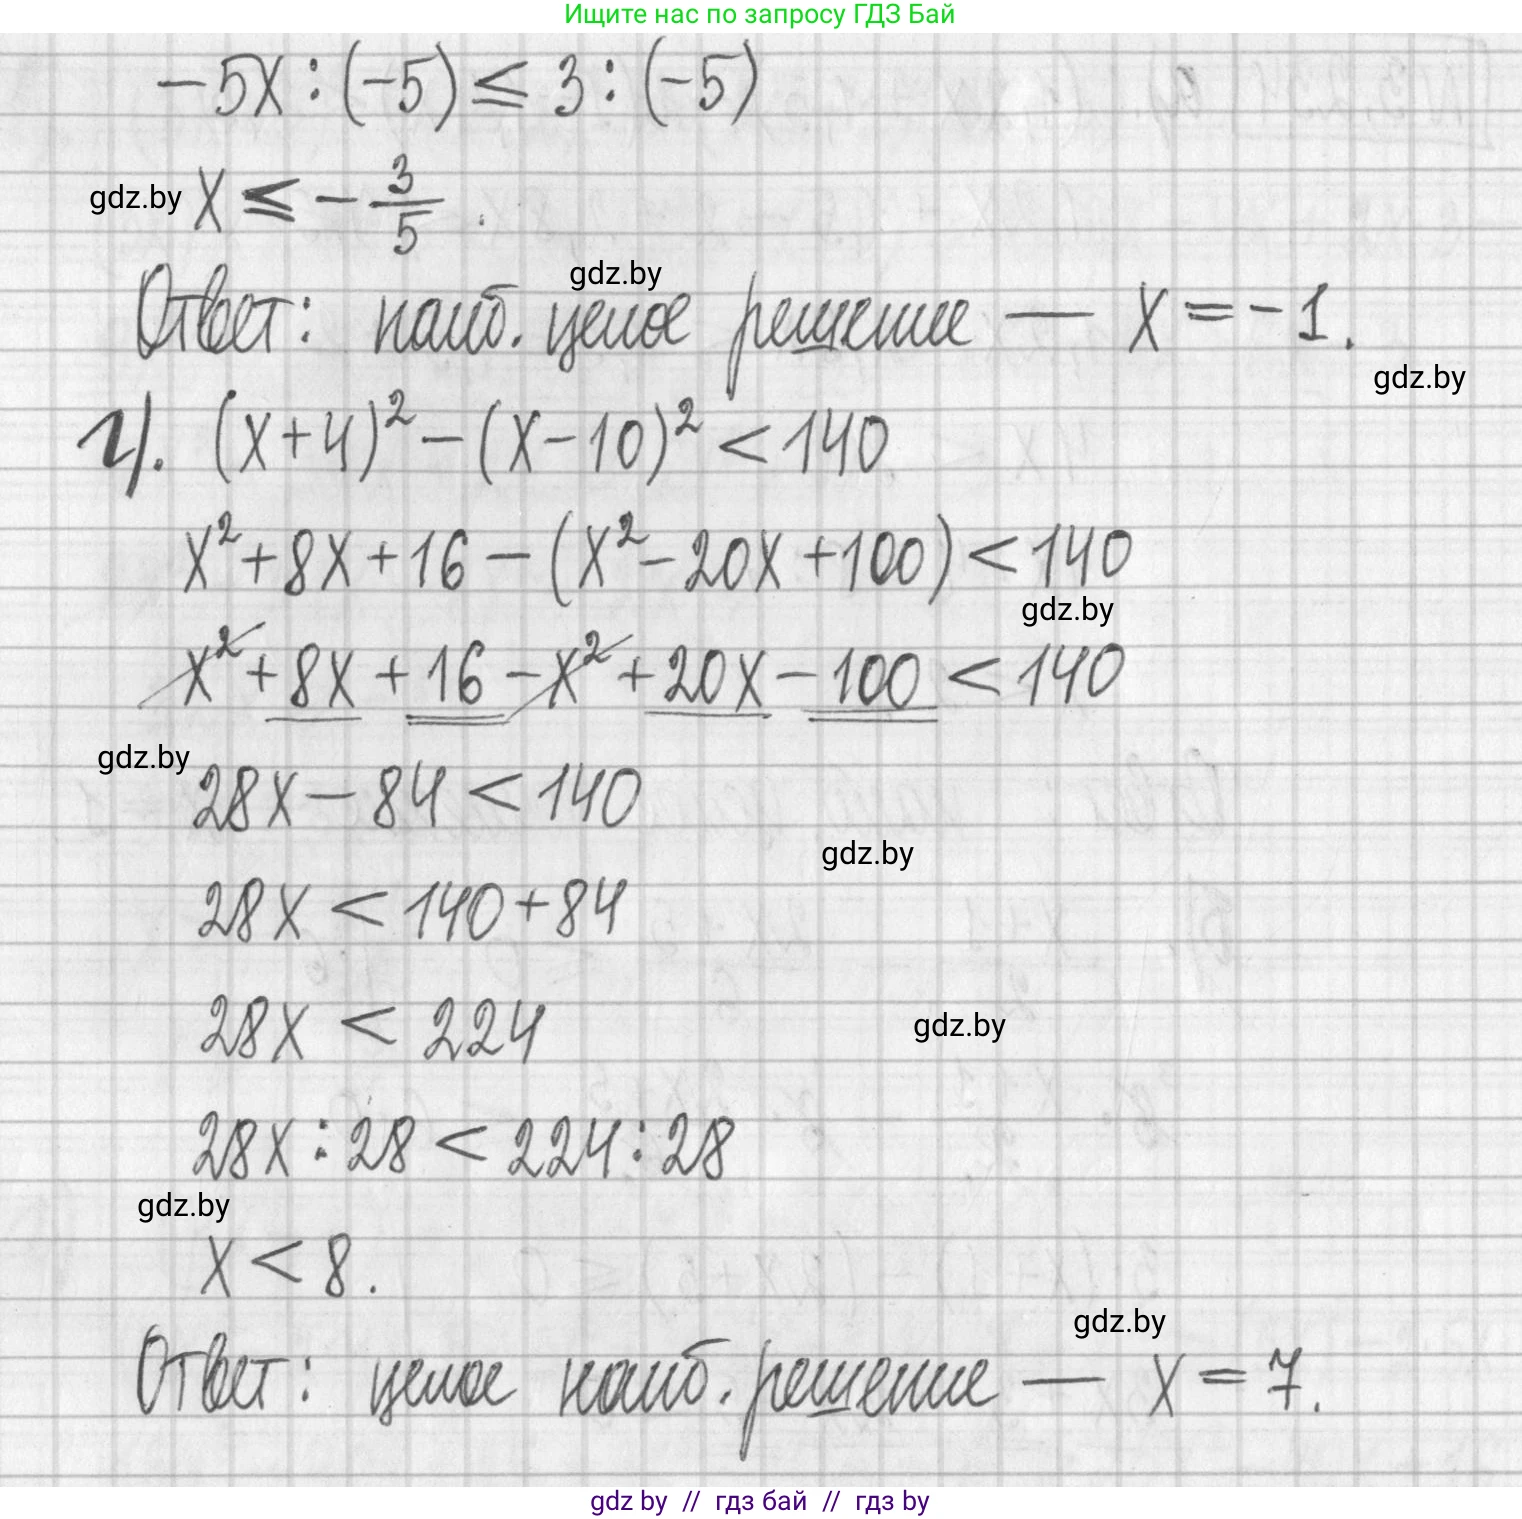 Ищите нас по запросу ГДЗ Бай
-5x : (-5) ≤ 3 : (-5)
gdz.by x ≤ - 3/5 .
gdz.by
Ответ: наиб. целое решение — x = -1.
gdz.by
г). (x+4)² - (x-10)² < 140
x² + 8x + 16 - (x² - 20x + 100) < 140
gdz.by
x² + 8x + 16 - x² + 20x - 100 < 140
gdz.by
28x - 84 < 140
gdz.by
28x < 140 + 84
28x < 224
gdz.by
28x : 28 < 224 : 28
gdz.by
x < 8.
gdz.by
Ответ: целое наиб. решение — x = 7.
gdz by // гдз бай // гдз by